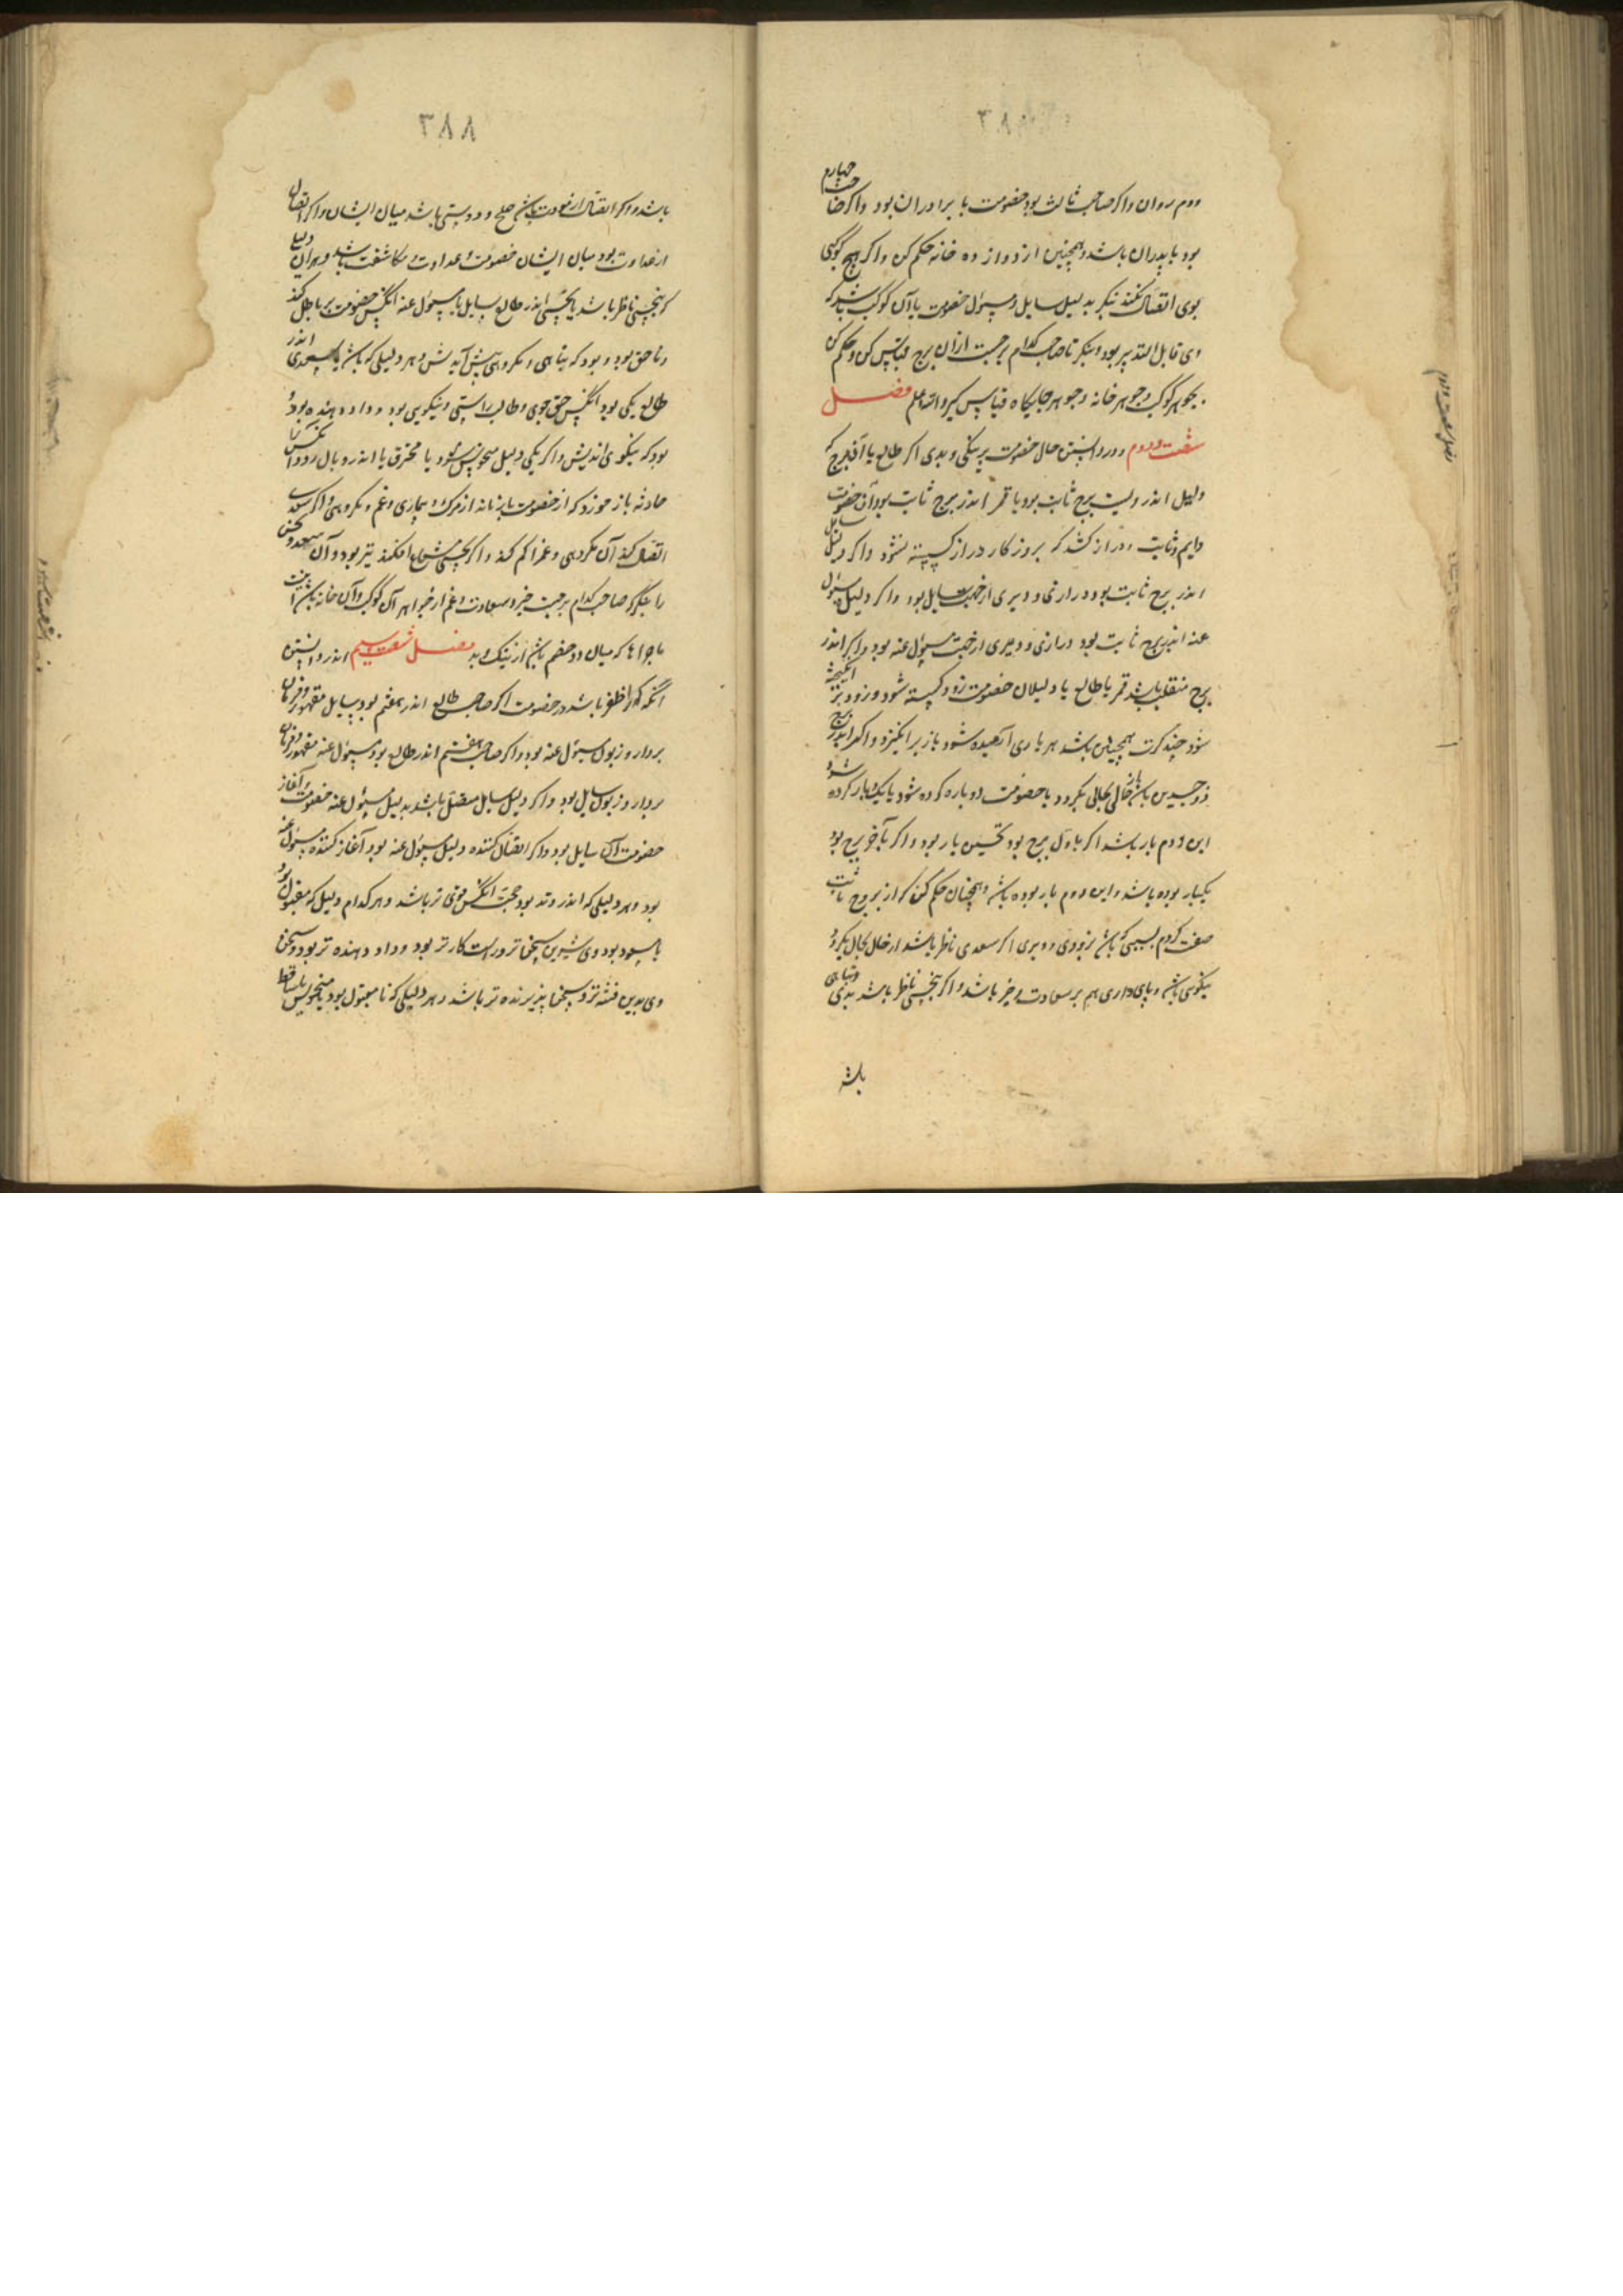 دوم روان واکر صاحب ثالث بود خصومت با برادران بود واکر صاحب چهارم
بود با پدران باشد وهمچنین از دوازده خانه حکم کن واکر هیچ کوکبی
بوی اتصال نکند نیکر بدلیل سایل ومسئول خصومت با آن کوکب باشد که
وی قابل التدبیر بود وبنکر تا صاحب کدام برجست ازان برج قیاس کن وحکم کن
بجوهر کوکب وجوهر خانه وجوهر جایکاه قیاس کیر والله اعلم فصل
شصت ودوم در دانستن حال خصومت بر نیکی وبدی اکر طالع یا آن برج که
دلیل اندر ویست برج ثابت بود یا قمر اندر برج ثابت بود آن خصومت
دایم وثابت ودراز کشد که بروزکار دراز کسسته نشود واکر دلیل سایل
اندر برج ثابت بود درازی ودیری از جهت سایل بود واکر دلیل مسئول
عنه اندر برج ثابت بود درازی ودیری از جهت مسئول عنه بود واکر اندر
برج منقلب باشد قمر یا طالع یا دلیلان خصومت زود کسسته شود وزود بر انکیخته
شود چند کرت همچنین باشد هر باری آرمیده شود باز بر انکیزد واکر اندر برج
ذوجسدین باشد از حالی بحالی بکردد یا خصومت دوباره کرده شود یا یک بار کرده شود
این دوم بار باشد اکر باول برج بود نخستین بار بود واکر بآخر برج بود
یکبار بوده باشد واین دوم بار بوده باشد وهمچنان حکم کن که از بروج ثابت
صفت کردم بسببی که باشد بزودی ودیری اکر سعدی ناظر باشد از حال بحال بکردد
نیکوی باشد وپای داری هم بر سعادت وخیر باشد واکر نحسی ناظر باشد بدی وتباهی
باشد
٣٨٨
باشد واکر اتصال از مودت باشد صلح ودوستی باشد میان ایشان واکر اتصال
از عداوت بود میان ایشان خصومت وعداوت ومکاشفت باشد وهر آن دلیلی
که نحسی ناظر باشد یا نحسی اندر طالع سایل یا مسئول عنه آنکس خصومت بر باطل کند
وناحق بود وبود که تباهی ومکروهی پیش آیدش وهر دلیلی که باشد یا سعدی اندر
طالع یکی بود آنکس حق جوی وطالب راستی ونیکویی بود وداد دهنده بود
بود که نیکوی اندیش واکر یکی دلیل منحوس شود یا محترق یا اندر وبال رود آنکس را
حادثه باز خورد که از خصومت باز ماند از مرک وبیماری وغم ومکروهی واکر بسعد
اتصال کند آن مکروهی وغم را کم کند واکر نحسی شعاع افکند بتر بود وآن سعد ونحس
را بنکر که صاحب کدام برجست خیر وسعادت وغم از جواهر آن کوکب وآن خانه باشد
ماجراها که میان دو خصم باشد از نیک وبد فصل شصت وسیم اندر دانستن
آنکه کرا ظفر باشد در خصومت اکر صاحب طالع اندر هفتم بود سایل مقهور وفرمان
بردار وزبون مسئول عنه بود واکر صاحب هفتم اندر طالع بود مسئول عنه مقهور وفرمان
بردار وزبون سایل بود واکر دلیل سایل متصل باشد بدلیل مسئول عنه خصومت وآغاز
خصومت از سایل بود واکر اتصال کننده دلیل مسئول عنه بود آغاز کننده مسئول عنه
بود وهر دلیلی که اندر وتد بود حجت آنکس قوی تر باشد وهر کدام دلیل که مقبول بود
یا مسعود بود وی شیرین سخن تر وراست کار تر بود وداد دهنده تر بود وسخن
وی بدین فتنه تر وسخن پذیرنده تر باشد وهر دلیلی که نا مقبول بود یا منحوس یا ساقط